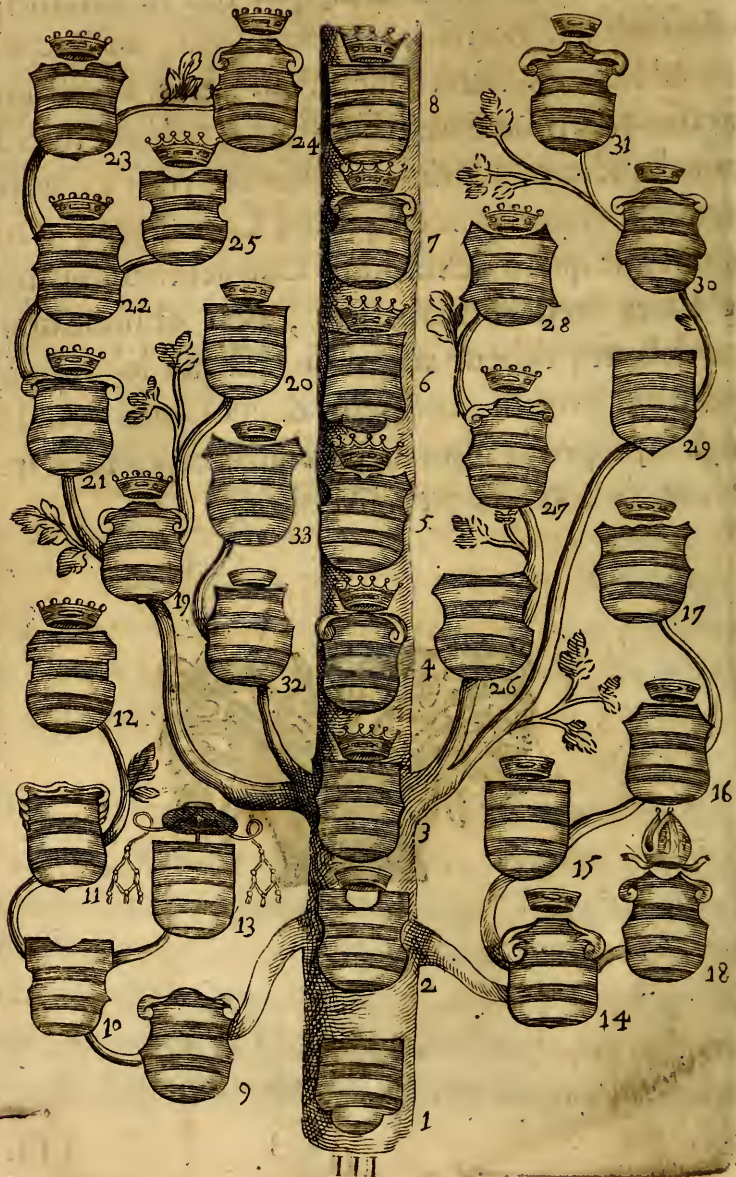 8
31
23
24
25
7
30
22
28
20
6
29
21
27
33
5
19
17
12
32
4
26
16
3
11
13
15
18
2
10
14
9
1
III